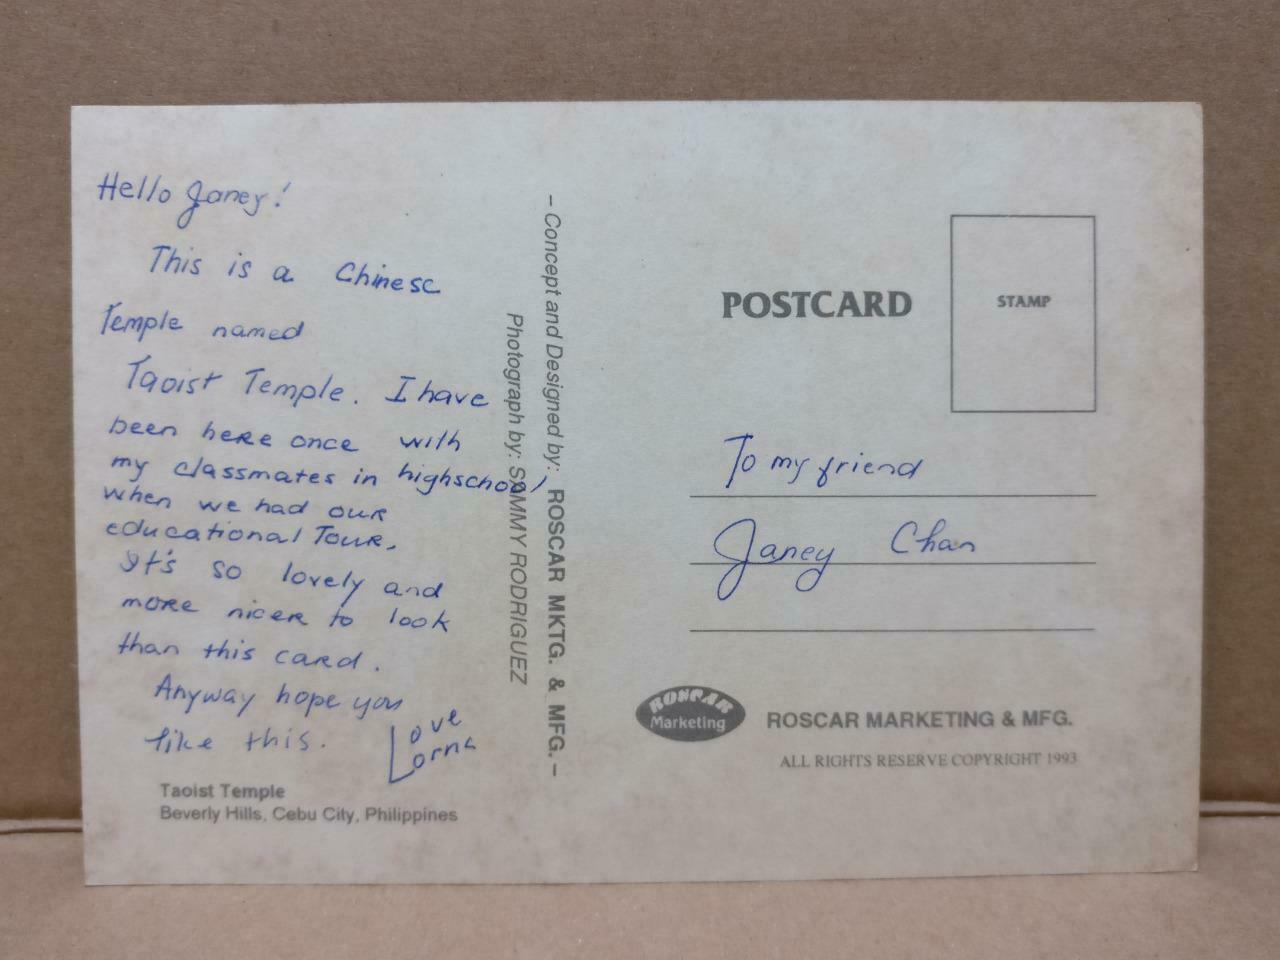 Hello Janey!
This is a Chinese
Temple named
Taoist Temple. I have
been here once with
my classmates in highschool
when we had our
educational Tour.
It's so lovely and
more nicer to look
than this card.
Anyway hope you
like this.
Love
Lorna
Taoist Temple
Beverly Hills, Cebu City, Philippines
Photograph by: SAMMY RODRIGUEZ
- Concept and Designed by: ROSCAR MKTG. & MFG. -
POSTCARD
STAMP
To my friend
Janey Chan
ROSCAR
Marketing
ROSCAR MARKETING & MFG.
ALL RIGHTS RESERVE COPYRIGHT 1993